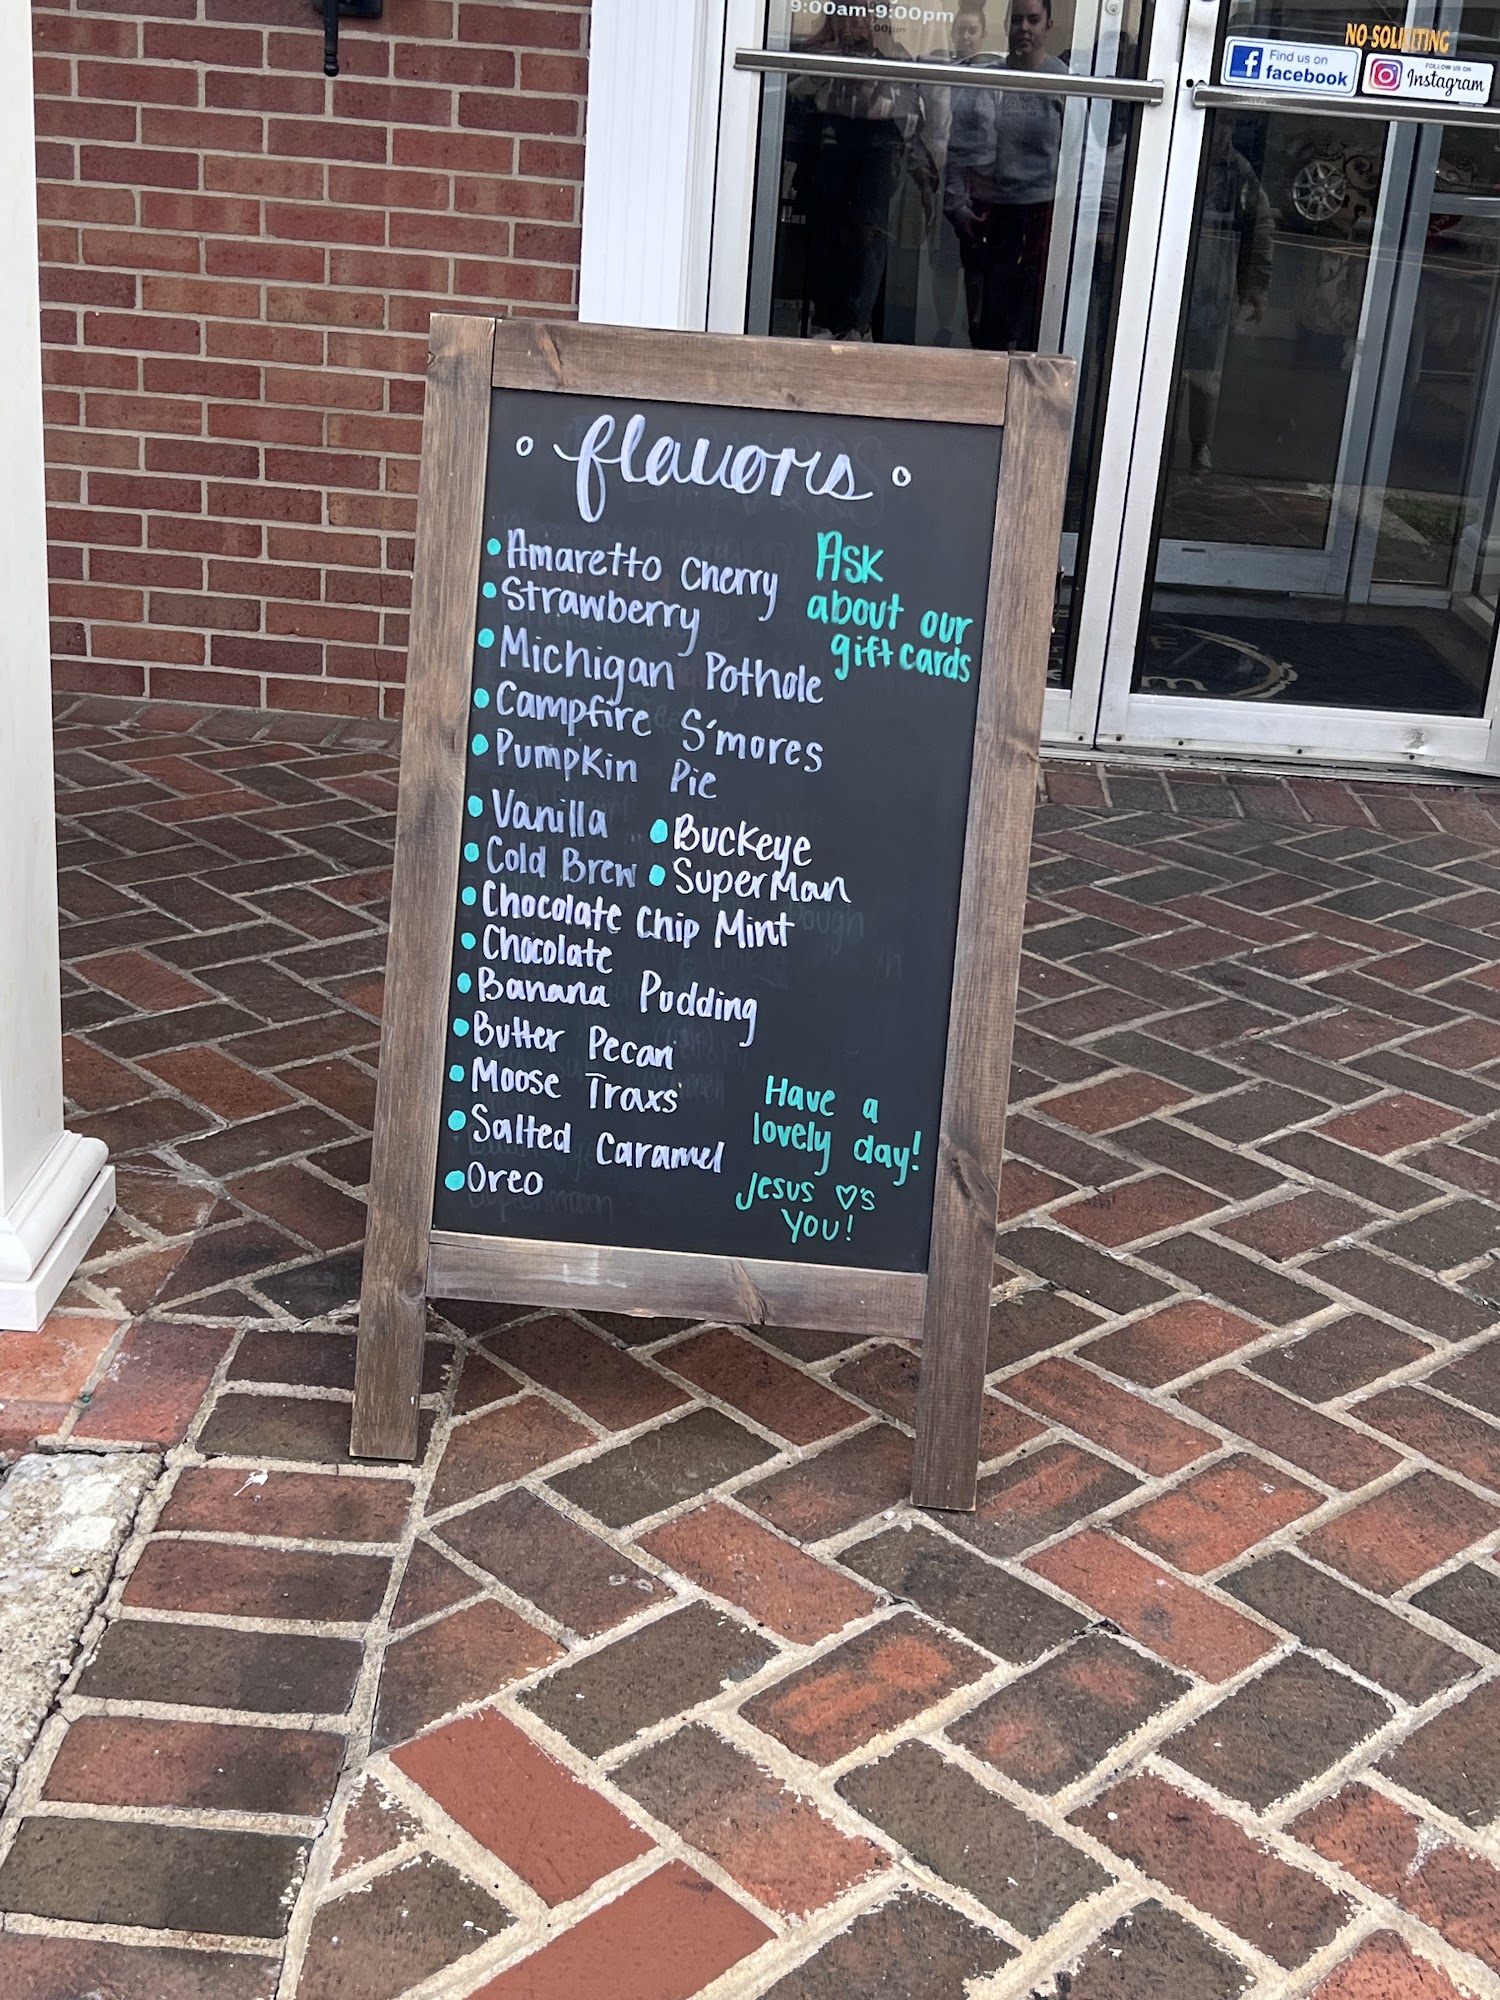 9:00am-9:00pm
NO SOLICITING
Find us on
facebook
FOLLOW US ON
Instagram
flavors
Amaretto Cherry
Strawberry
Michigan Pothole
Campfire S'mores
Pumpkin Pie
Vanilla
Cold Brew
Chocolate Chip Mint
Chocolate
Banana Pudding
Butter Pecan
Moose Traxs
Salted Caramel
Oreo
Buckeye
SuperMan
Ask
about our
gift cards
Have a
lovely day!
Jesus ♡'s
You!